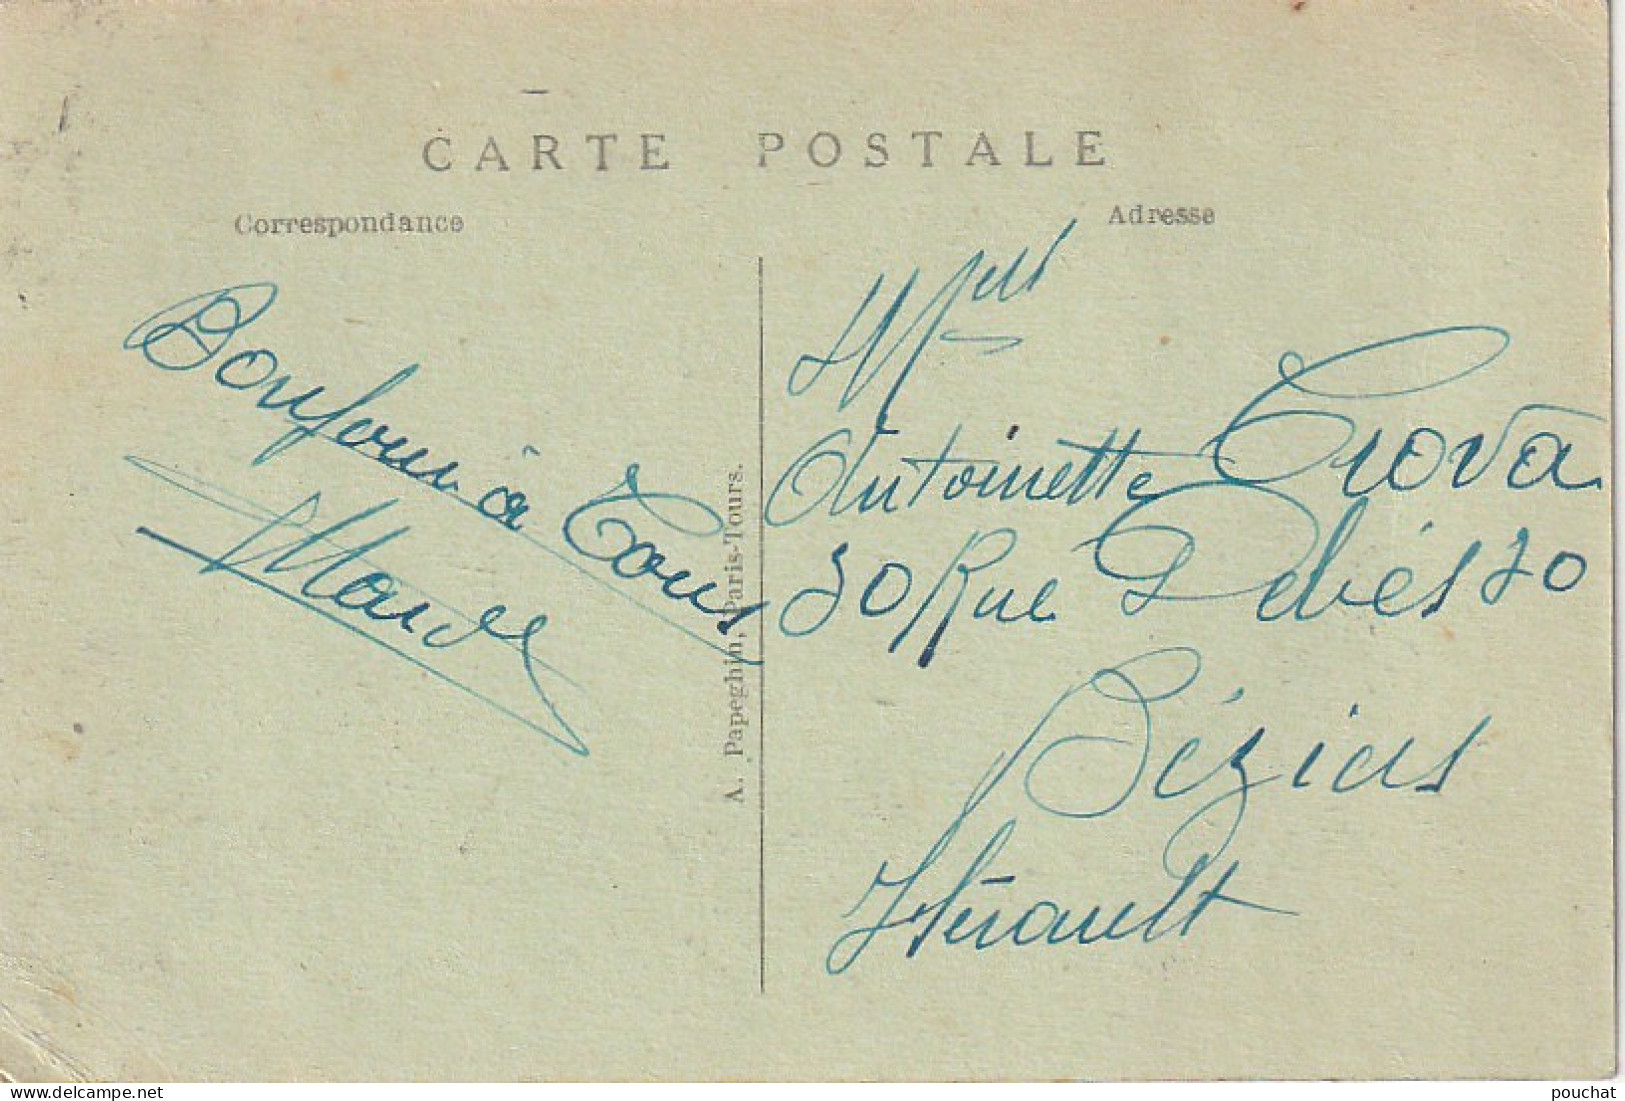 CARTE POSTALE
Correspondance
Adresse
Bonjour à Tous
Maude
A. Papeghin, Paris-Tours.
Antoinette Crova
30 Rue Debès 30
Béziers
Hérault
pouchat